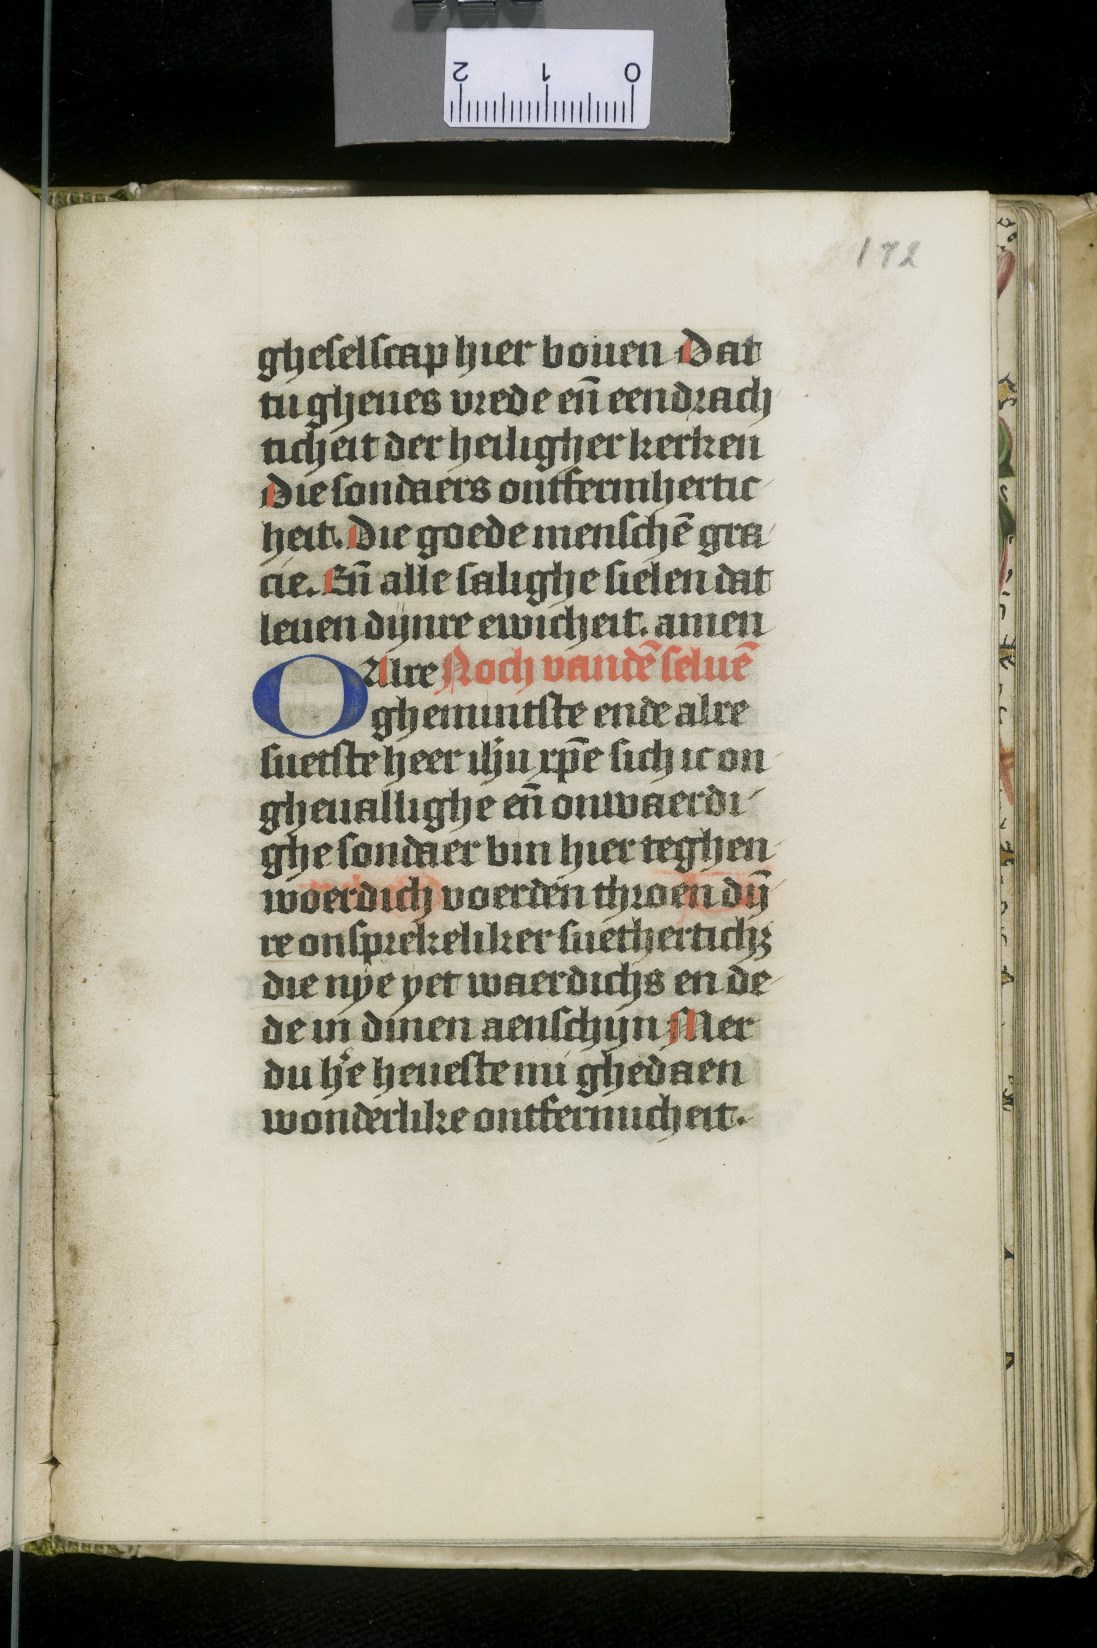 172
gheselscap hier bouen Dat
tu gheues vrede en̄ eendrach
ticheit der heiligher kerken
Die sondaers ontfermhertic
heit. Die goede menschē gra
cie. En̄ alle salighe sielen dat
leuen dijnre ewicheit. amen
O Alre Noch vandē seluē
ghemintste ende alre
suetste heer ihū xp̄e sich ic on
gheuallighe en̄ onwaerdi
ghe sondaer bin hier teghen
woerdich voerden throen dȳ
re onsprekeliker suethertichꝫ
die nye yet waerdichs en de
de in dinen aenschijn Mer
du he heueste mi ghedaen
wonderlike ontfermicheit.
2 1 0